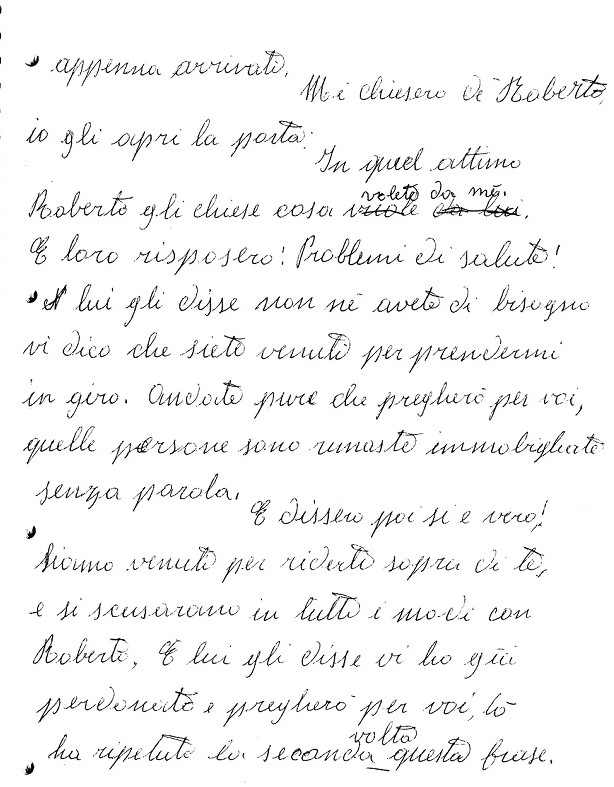 appenna arrivati.
Mi chiesero di Roberto,
io gli apri la porta.
In quel attimo
volete da me.
Roberto gli chiese cosa
E loro risposero! Problemi di salute!
E lui gli disse non né avete di bisogno
vi dico che siete venuti per prendermi
in giro. Andate pure che pregherò per voi,
quelle persone sono rimaste immobigliate
senza parola.
E dissero poi si e vero!
Siamo venuti per riderti sopra di te,
e si scusarano in tutti i modi con
Roberto, E lui gli disse vi ho già
perdonato e pregherò per voi, lo
volta
ha ripetuto la seconda questa frase.